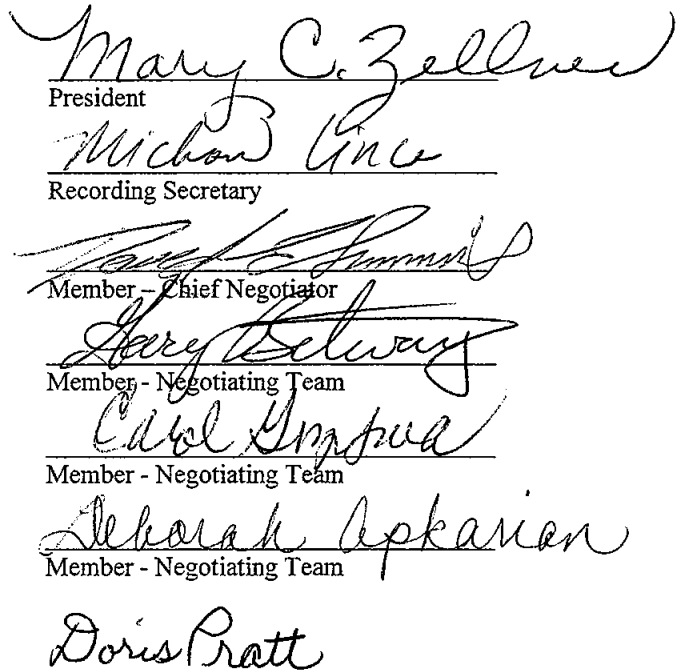 Mary C. Zellner
President
Michon
Recording Secretary
Member – Chief Negotiator
Gary
Member - Negotiating Team
Carol
Member - Negotiating Team
Deborah Apkarian
Member - Negotiating Team
Doris Pratt